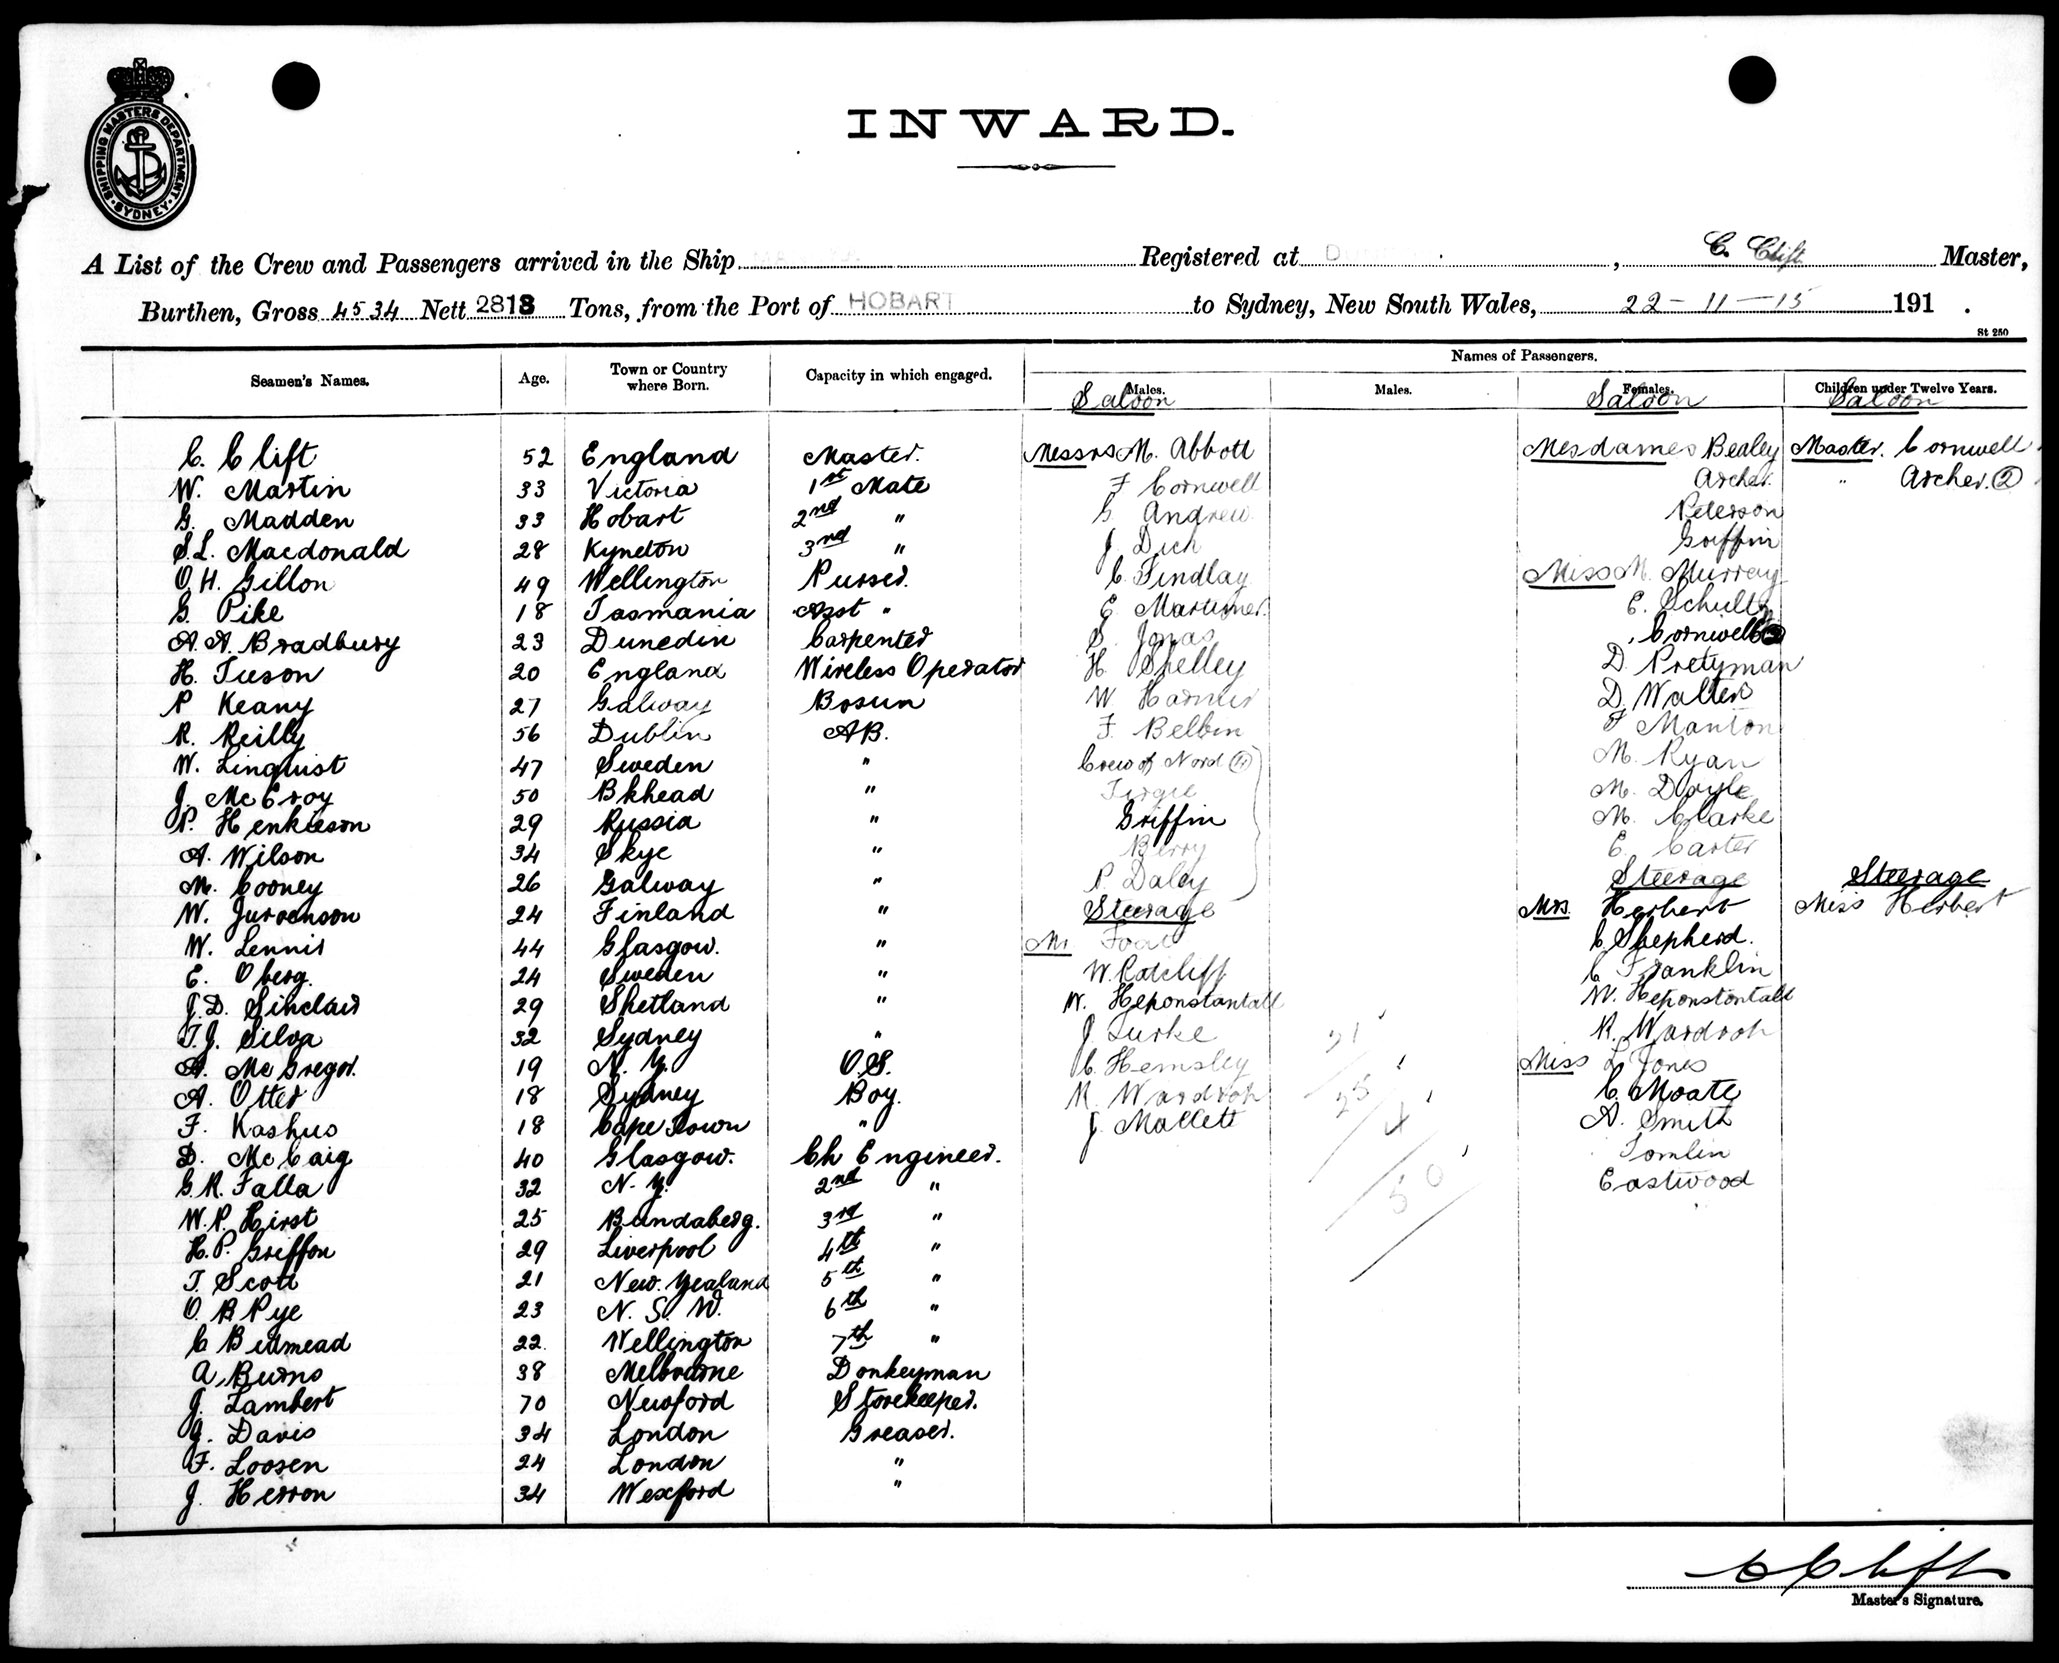 SHIPPING MASTERS DEPARTMENT. SYDNEY
INWARD.
A List of the Crew and Passengers arrived in the Ship Registered at , C. Clift Master,
Burthen, Gross 4534 Nett 2813 Tons, from the Port of HOBART to Sydney, New South Wales, 22-11-15 191 .
St 250
Names of Passengers.
Seamen's Names. Age. Town or Country where Born. Capacity in which engaged. Males. Males. Females. Children under Twelve Years.
Saloon Saloon Saloon
C. Clift 52 England Master. Messrs M. Abbott Mesdames Bealey Master. Cornwell
W. Martin 33 Victoria 1st Mate F Cornwell Archer. " Archer. 2
G. Madden 33 Hobart 2nd " G Andrew Peterson
S.L. Macdonald 28 Kyneton 3rd " J Dick Griffin
O.H. Gillon 49 Wellington Purser. C. Findlay Miss M. Murray
G. Pike 18 Tasmania Asst " E. Mortimer. E. Schultz
A.A. Bradbury 23 Dunedin Carpenter S. Jonas Cornwell
H. Tueson 20 England Wireless Operator H. Shelley D. Pretyman
P Keany 27 Galway Bosun W D. Walters
R. Reilly 56 Dublin AB. F. Belbin F Manton
W. Linquist 47 Sweden " Crew of Nord M. Ryan
J. McEroy 50 Bkhead " M. Doyle
P. Henkieson 29 Russia " Griffin M. Clarke
A. Wilson 34 Skye " Berry E. Carter
M. Cooney 26 Galway " P. Daley Steerage Steerage
W. Jurvenson 24 Finland " Steerage Mrs. Herbert Miss Herbert
W. Lennis 44 Glasgow. " Mr C. Shepherd.
E. Oberg. 24 Sweden " W. Ratcliff C Franklin
J.D. Sinclair 29 Shetland " W. Heponstantall W. Heponstontall
T.J. Silva 32 Sydney " J. Lurke R. Wardroh
A. McGregor. 19 N.Z. O.S. C. Hemsley Miss L. Jones
A. Otter 18 Sydney Boy. R. Wardroh C. Moate
F. Kashus 18 Cape Town " J. Mallett A. Smith
D. McCaig 40 Glasgow. Ch Engineer. Tomlin
G.R. Falla 32 N.Z. 2nd " Eastwood
W.P. Hirst 25 Bundaberg. 3rd "
H.P. Griffon 29 Liverpool 4th "
T. Scott 21 New Zealand 5th "
O.B Pye 23 N.S.W. 6th "
C Bidmead 22. Wellington 7th "
A. Burns 38 Melbourne Donkeyman
J. Lambert 70 Newford Storekeeper.
J. Davis 34 London Greaser.
F. Loosen 24 London "
J. Herron 34 Wexford "
C Clift
Master's Signature.